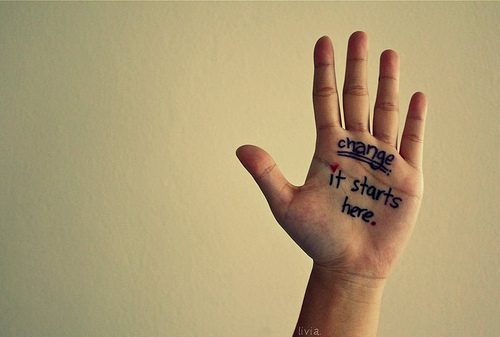 change
it starts
here.
livia